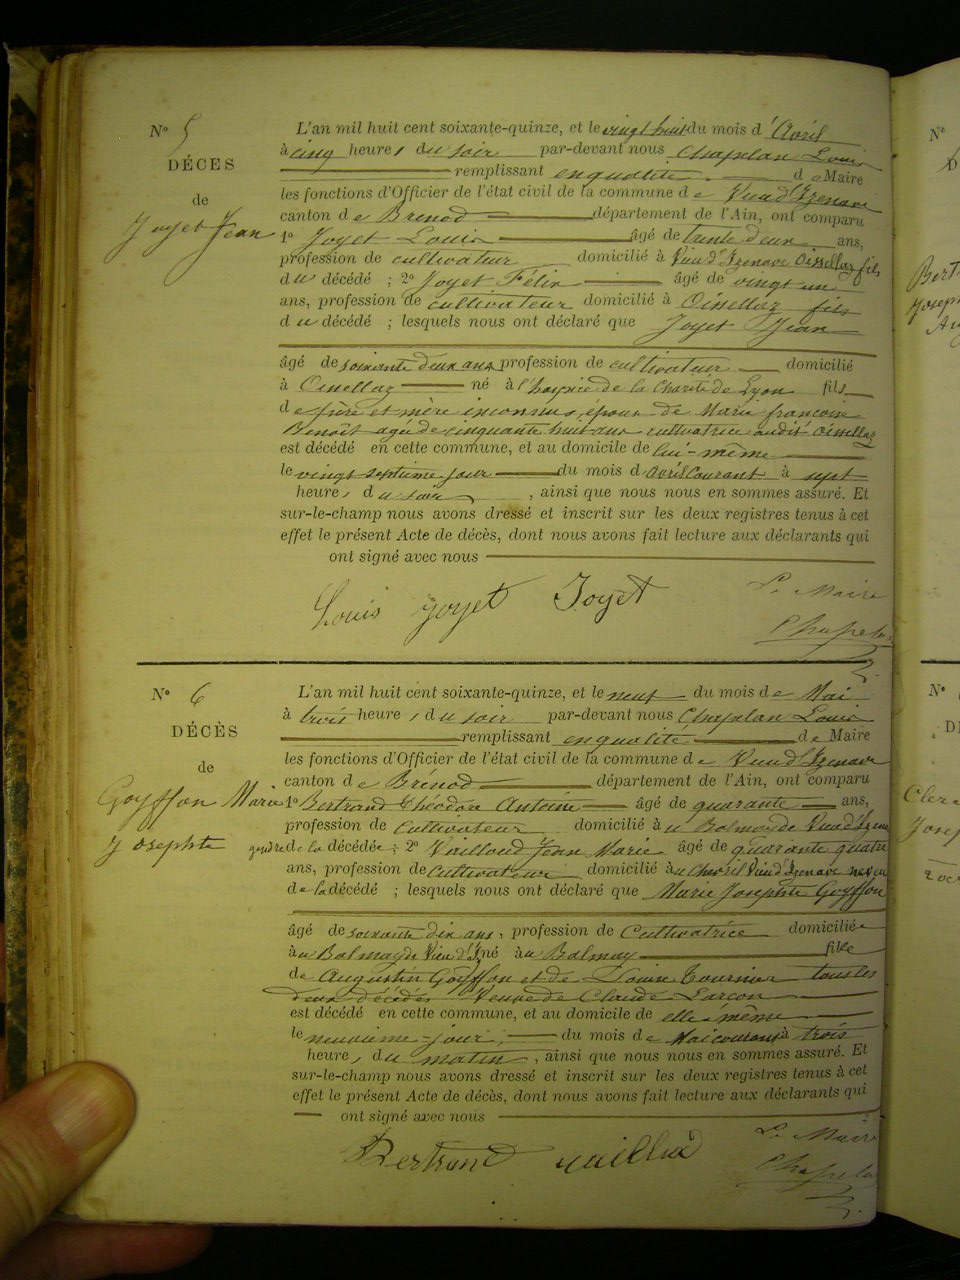 N° 5
DÉCES
de
Joyet Jean
L'an mil huit cent soixante-quinze, et le vingt huit du mois d'Avril
à cinq heures du soir par-devant nous Chapelan Louis
remplissant en qualité de Maire
les fonctions d'Officier de l'état civil de la commune de Vieu d'Izenave
canton de Brenod département de l'Ain, ont comparu
1° Joyet Louis âgé de trente deux ans,
profession de cultivateur domicilié à Vieu d'Izenave Oissellaz fils
du décédé ; 2° Joyet Félix âgé de vingt un
ans, profession de cultivateur domicilié à Oisellaz fils
du décédé ; lesquels nous ont déclaré que Joyet Jean
âgé de soixante deux ans profession de cultivateur domicilié
à Oisellaz né à l'hospice de la Charité de Lyon fils
de père et mère inconnus, époux de Marie françoise
Benoît agée de cinquante huit ans cultivatrice audit Oissellaz
est décédé en cette commune, et au domicile de lui-même
le vingt septième jour du mois d'avril Courant à sept
heures du soir, ainsi que nous nous en sommes assuré. Et
sur-le-champ nous avons dressé et inscrit sur les deux registres tenus à cet
effet le présent Acte de décès, dont nous avons fait lecture aux déclarants qui
ont signé avec nous
Louis joyet Joyet Le Maire
Chapelan
N° 6
DÉCÈS
de
Goyffon Marie
Josephte
L'an mil huit cent soixante-quinze, et le neuf du mois de Mai
à trois heures du soir par-devant nous Chapelan Louis
remplissant en qualité de Maire
les fonctions d'Officier de l'état civil de la commune de Vieu d'Izenave
canton de Brénod département de l'Ain, ont comparu
1° Bertrand Théodore Antoine âgé de quarante ans,
profession de cultivateur domicilié au Balmay de Vieu d'Izenave
gendre de la décédée ; 2° Vailloud Jean Marie âgé de quarante quatre
ans, profession de Cultivateur domicilié au Vieu d'Izenave neveu
de la décédé ; lesquels nous ont déclaré que Marie Josephte Goyffon
âgé de soixante dix ans, profession de Cultivatrice domiciliée
au Balmay de Vieu d'I né au Balmay fille
de Augustin Goyffon et de Louise Tournier tous les
deux décédés Veuve de Claude Larçon
est décédé en cette commune, et au domicile de elle-même
le neuvième jour du mois de Mai courant à trois
heures du matin, ainsi que nous nous en sommes assuré. Et
sur-le-champ nous avons dressé et inscrit sur les deux registres tenus à cet
effet le présent Acte de décès, dont nous avons fait lecture aux déclarants qui
ont signé avec nous
Bertrand Le Maire
Chapelan